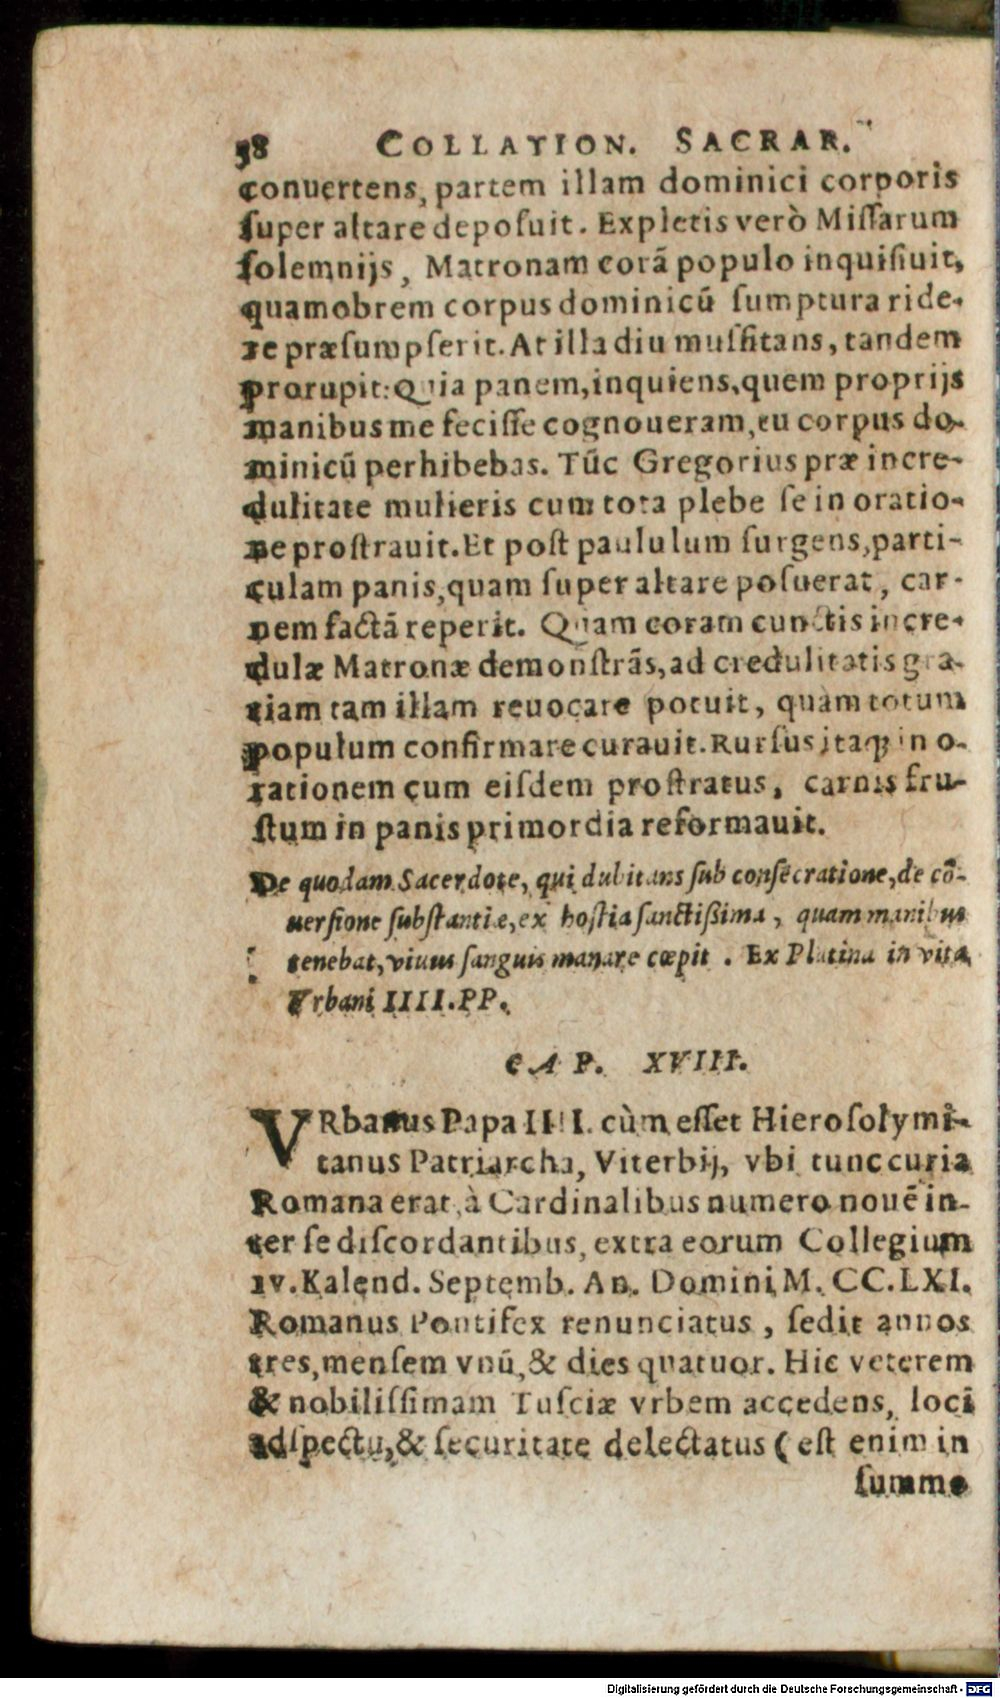 58 COLLATION. SACRAR.
conuertens, partem illam dominici corporis
ſuper altare depoſuit. Expletis verò Miſſarum
ſolemnijs, Matronam corā populo inquiſiuit,
quamobrem corpus dominicū ſumptura ride-
re præſumpſerit. At illa diu muſſitans, tandem
prorupit: Quia panem, inquiens, quem proprijs
manibus me feciſſe cognoueram, tu corpus do-
minicū perhibebas. Tūc Gregorius præ incre-
dulitate mulieris cum tota plebe ſe in oratio-
ne proſtrauit. Et poſt paululum ſurgens, parti-
culam panis, quam ſuper altare poſuerat, car-
nem factā reperit. Quam coram cunctis incre-
dulæ Matronæ demonſtrās, ad credulitatis gra-
tiam tam illam reuocare potuit, quàm totum
populum confirmare curauit. Rurſus itaq; in o-
rationem cum eiſdem proſtratus, carnis fru-
ſtum in panis primordia reformauit.
De quodam Sacerdote, qui dubitans ſub conſecratione, de cō-
uerſione ſubſtantiæ, ex hoſtia ſanctiſſima, quam manibus
tenebat, viuus ſanguis manare cœpit. Ex Platina in vita
Vrbani IIII. PP.
CAP. XVIII.
VRbanus Papa IIII. cùm eſſet Hieroſolymi-
tanus Patriarcha, Viterbij, vbi tunc curia
Romana erat, à Cardinalibus numero nouē in-
ter ſe diſcordantibus, extra eorum Collegium
IV. Kalend. Septemb. An. Domini M. CC. LXI.
Romanus Pontifex renunciatus, ſedit annos
tres, menſem vnū, & dies quatuor. Hic veterem
& nobiliſſimam Tuſciæ vrbem accedens, loci
adſpectu, & ſecuritate delectatus (eſt enim in
ſummo
Digitalisierung gefördert durch die Deutsche Forschungsgemeinschaft - DFG